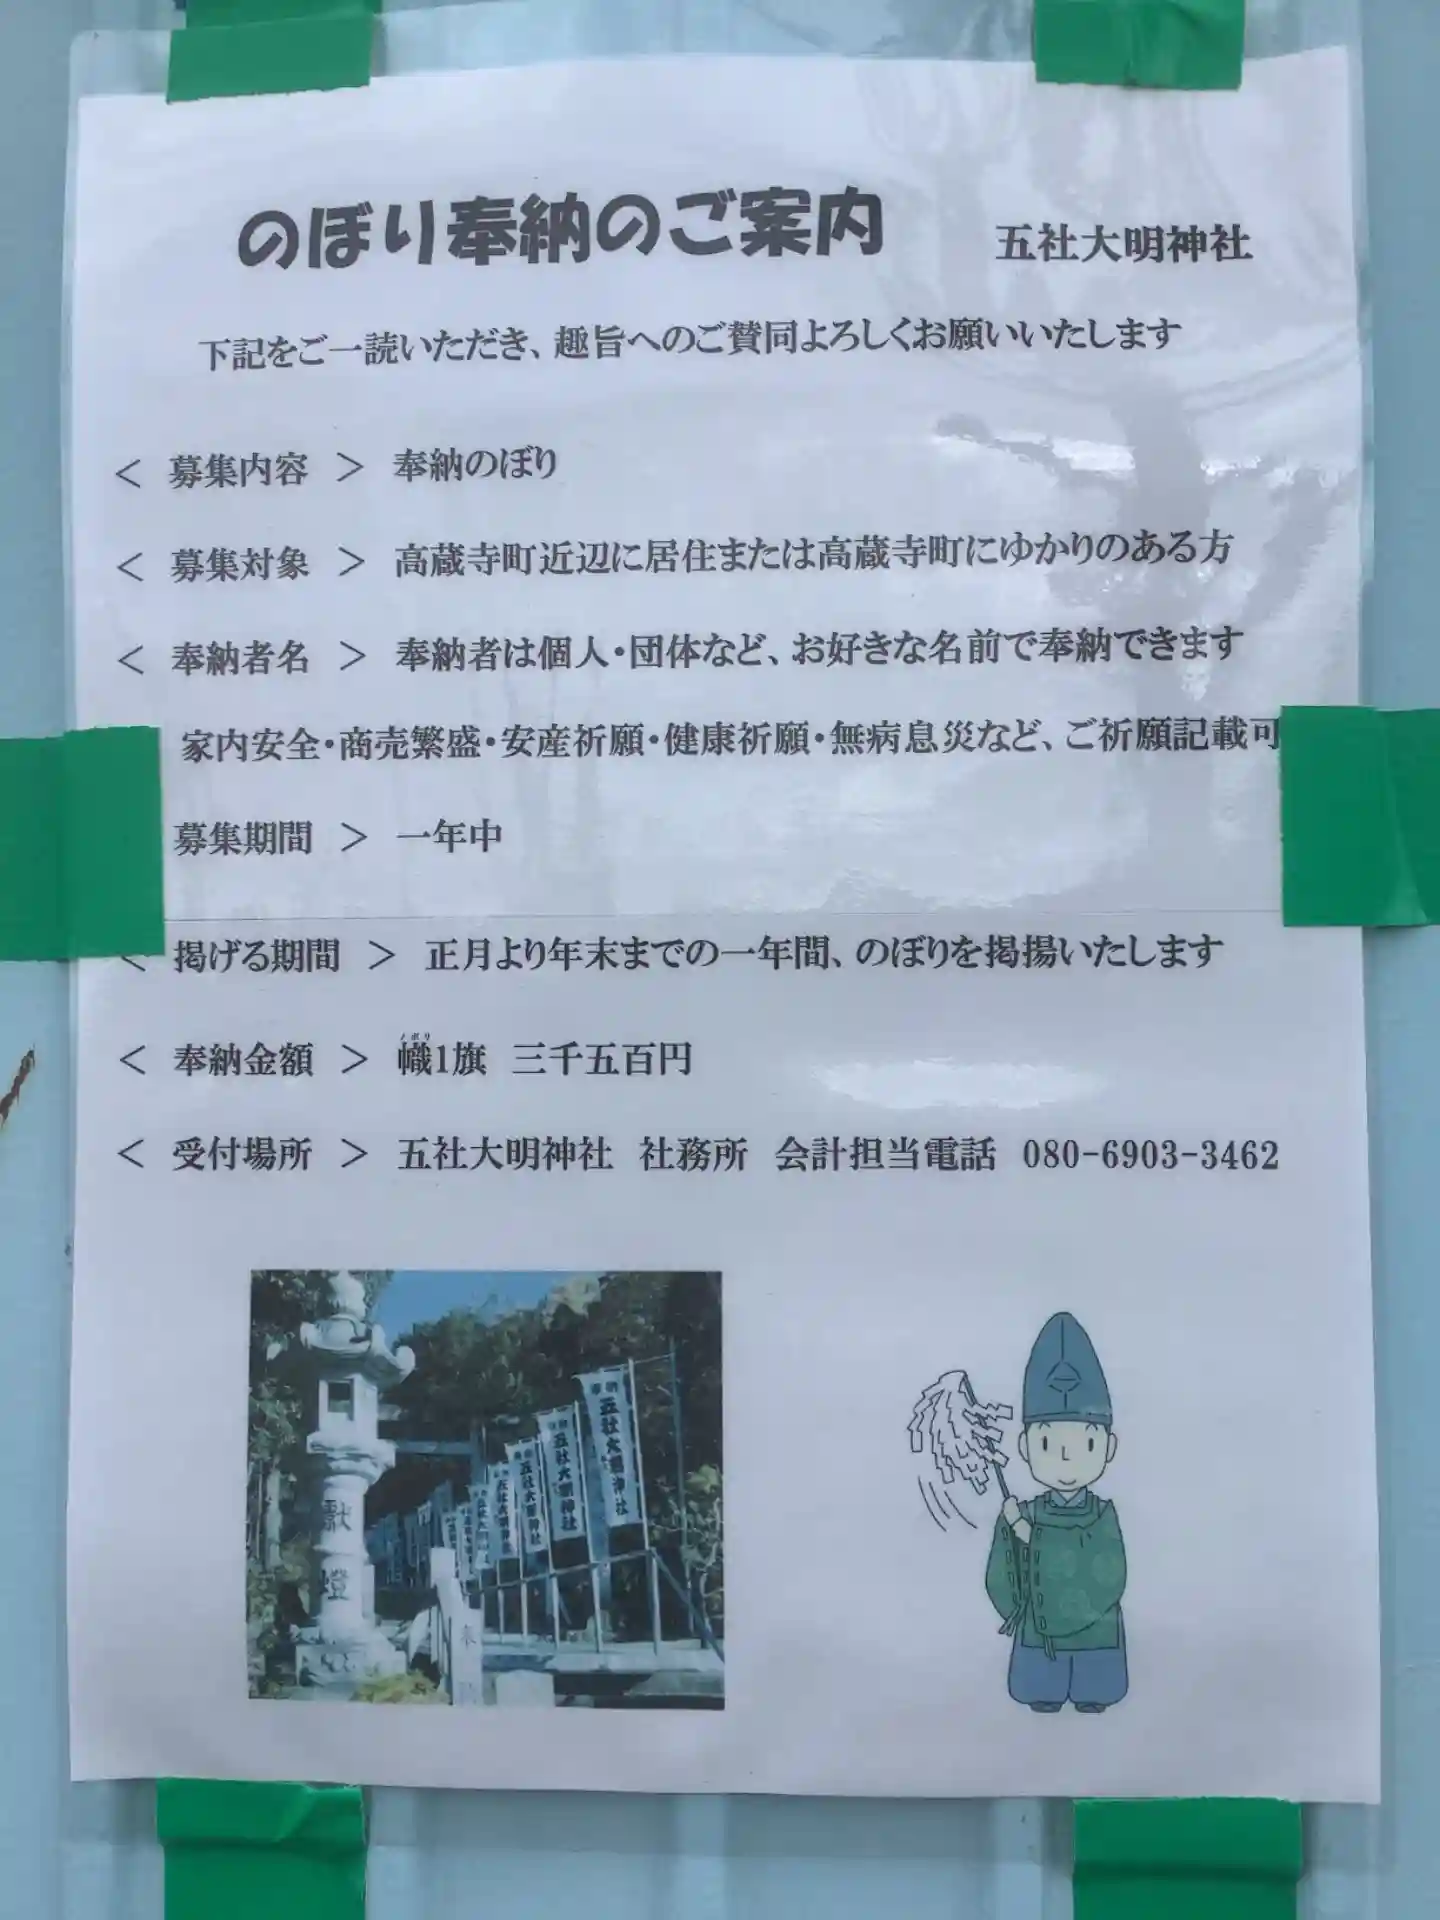 のぼり奉納のご案内 五社大明神社
下記をご一読いただき、趣旨へのご賛同よろしくお願いいたします
＜ 募集内容 ＞ 奉納のぼり
＜ 募集対象 ＞ 高蔵寺町近辺に居住または高蔵寺町にゆかりのある方
＜ 奉納者名 ＞ 奉納者は個人・団体など、お好きな名前で奉納できます
家内安全・商売繁盛・安産祈願・健康祈願・無病息災など、ご祈願記載可
募集期間 ＞ 一年中
＜ 掲げる期間 ＞ 正月より年末までの一年間、のぼりを掲揚いたします
ノボリ
＜ 奉納金額 ＞ 幟1旗 三千五百円
＜ 受付場所 ＞ 五社大明神社 社務所 会計担当電話 080-6903-3462
献燈
奉納 五社大明神社
奉納 五社大明神社
五社大明神社
五社大明神社
奉